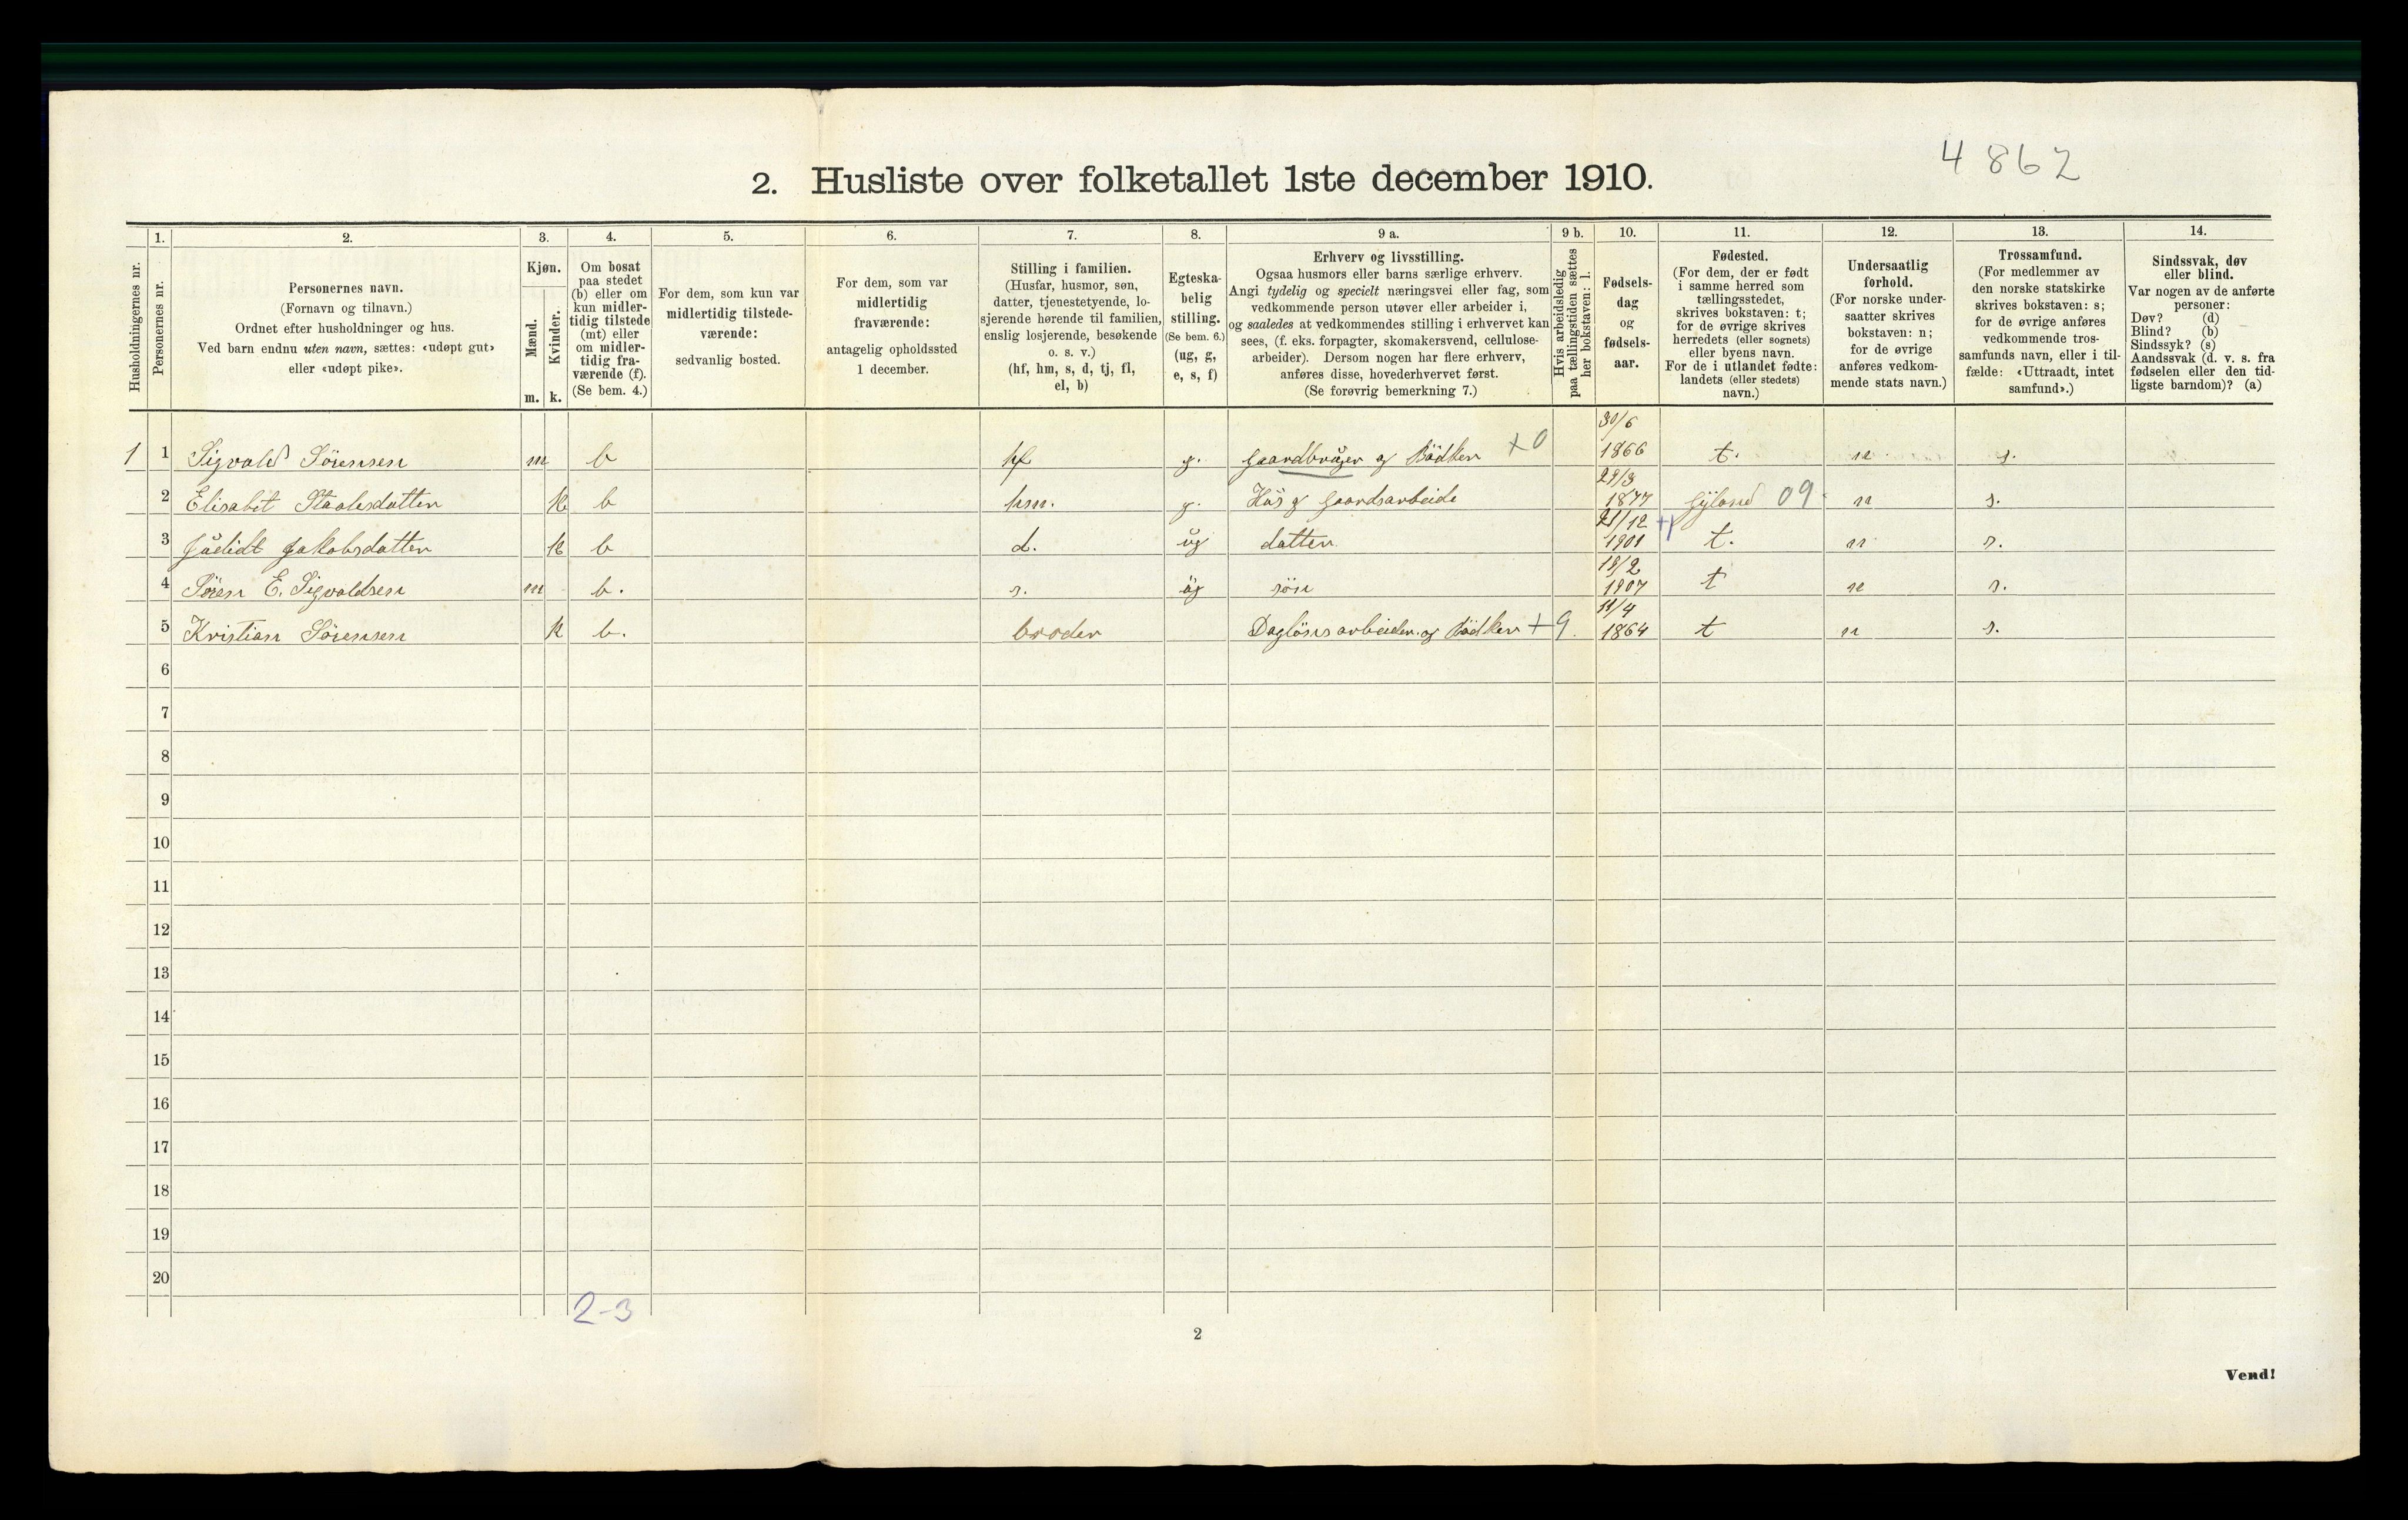 4862
2. Husliste over folketallet 1ste december 1910.
Husholdningernes nr.
1.
Personernes nr.
2.
Personernes navn.
(Fornavn og tilnavn.)
Ordnet efter husholdninger og hus.
Ved barn endnu uten navn, sættes: «udøpt gut»
eller «udøpt pike».
3.
Kjøn.
Mænd.
Kvinder.
m. k.
4.
Om bosat
paa stedet
(b) eller om
kun midler-
tidig tilstede
(mt) eller
om midler-
tidig fra-
værende (f).
(Se bem. 4.)
5.
For dem, som kun var
midlertidig tilstede-
værende:
sedvanlig bosted.
6.
For dem, som var
midlertidig
fraværende:
antagelig opholdssted
1 december.
7.
Stilling i familien.
(Husfar, husmor, søn,
datter, tjenestetyende, lo-
sjerende hørende til familien,
enslig losjerende, besøkende
o. s. v.)
(hf, hm, s, d, tj, fl,
el, b)
8.
Egteska-
belig
stilling.
(Se bem. 6.)
(ug, g,
e, s, f)
9 a.
Erhverv og livsstilling.
Ogsaa husmors eller barns særlige erhverv.
Angi tydelig og specielt næringsvei eller fag, som
vedkommende person utøver eller arbeider i,
og saaledes at vedkommendes stilling i erhvervet kan
sees, (f. eks. forpagter, skomakersvend, cellulose-
arbeider). Dersom nogen har flere erhverv,
anføres disse, hovederhvervet først.
(Se forøvrig bemerkning 7.)
9 b.
Hvis arbeidsledig
paa tællingstiden sættes
her bokstaven: l.
10.
Fødsels-
dag
og
fødsels-
aar.
11.
Fødested.
(For dem, der er født
i samme herred som
tællingsstedet,
skrives bokstaven: t;
for de øvrige skrives
herredets (eller sognets)
eller byens navn.
For de i utlandet fødte:
landets (eller stedets)
navn.)
12.
Undersaatlig
forhold.
(For norske under-
saatter skrives
bokstaven: n;
for de øvrige
anføres vedkom-
mende stats navn.)
13.
Trossamfund.
(For medlemmer av
den norske statskirke
skrives bokstaven: s;
for de øvrige anføres
vedkommende tros-
samfunds navn, eller i til-
fælde: «Uttraadt, intet
samfund».)
14.
Sindssvak, døv
eller blind.
Var nogen av de anførte
personer:
Døv? (d)
Blind? (b)
Sindssyk? (s)
Aandssvak (d. v. s. fra
fødselen eller den tid-
ligste barndom)? (a)
1 1 Sigvald Sörensen m b hf g. Gaardbrüger og Bödker +0 30/6 1866 t. n s.
2 Elisabet Staalesdatter k b hm. g. Hüs og Gaardsarbeide 1877 Gyland 09 n s.
3 Jüdidt Jakobsdatter k b d. üg datter 21/12 1901 t. n s.
4 Sören E. Sigvaldsen m b. s. üg sön 1907 t n s.
5 Kristian Sörensen k b. broder Daglönsarbeider og Bödker +9. 11/4 1864 t n s.
6
7
8
9
10
11
12
13
14
15
16
17
18
19
20
2-3
2
Vend!